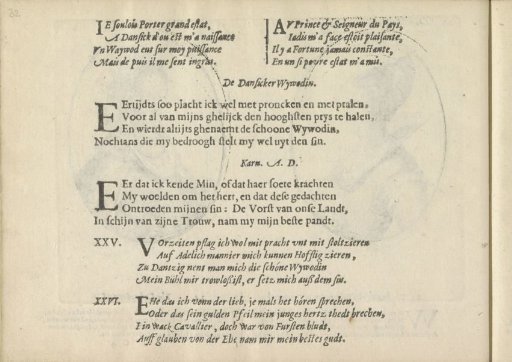 32
IE soulois Porter grand estat,
A Dansick d'ou est m'a naissance
Vn Waywod eut sur moy puissance
Mais de puis il me sent ingrat.
AV Prince & Seigneur du Pays,
Iadis m'a face estoit plaisante,
Il y a Fortune jamais constante,
En un si povre estat m'a mit.
De Dansicker Wywodin.
EErtijdts soo placht ick wel met proncken en met pralen,
Voor al van mijns ghelijck den hooghsten prys te halen,
En wierdt altijts ghenaemt de schoone Wywodin,
Nochtans die my bedroogh stelt my wel uyt den sin.
Karn. A. D.
EEr dat ick kende Min, of dat haer soete krachten
My woelden om het hert, en dat dese gedachten
Ontroeden mijnen sin: De Vorst van onse Landt,
In schijn van zijne Trouw, nam my mijn beste pandt.
XXV. VOrzeiten pflag ich wol mit pracht vnt mit stoltzieren
Auf Adelich mannier mich kunnen Hofflig zieren,
Zu Dantzig nent man mich die schöne Wywodin
Mein Bühl mir trowlos ist, er setz mich auß dem sin.
XXVI. EHe das ich vonn der lieb, je mals het hören sprechen,
Oder das sein gulden Pfeil mein junges hertz theds brechen,
Ein wack Cavallier, doch war von Fursten bluds,
Auff glauben von der Ehe nam mir mein bestes guds.